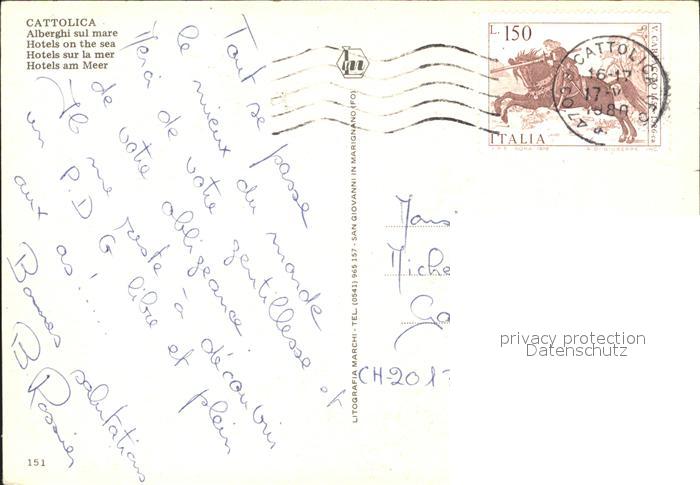 CATTOLICA
Alberghi sul mare
Hotels on the sea
Hotels sur la mer
Hotels am Meer
Tout se passe
le mieux du monde
Merci de votre gentillesse et
de votre obligeance.
Il me reste à découvrir
un P.D G libre et plein
aux as!....
Bonnes salutations
B. Rossier
151
LITOGRAFIA MARCHI - TEL. (0541) 965 157 - SAN GIOVANNI IN MARIGNANO (FO)
L. 150
ITALIA
CATTOLICA
16-17
17-
1980
Mons
Miche
Ga
CH-201
privacy protection
Datenschutz